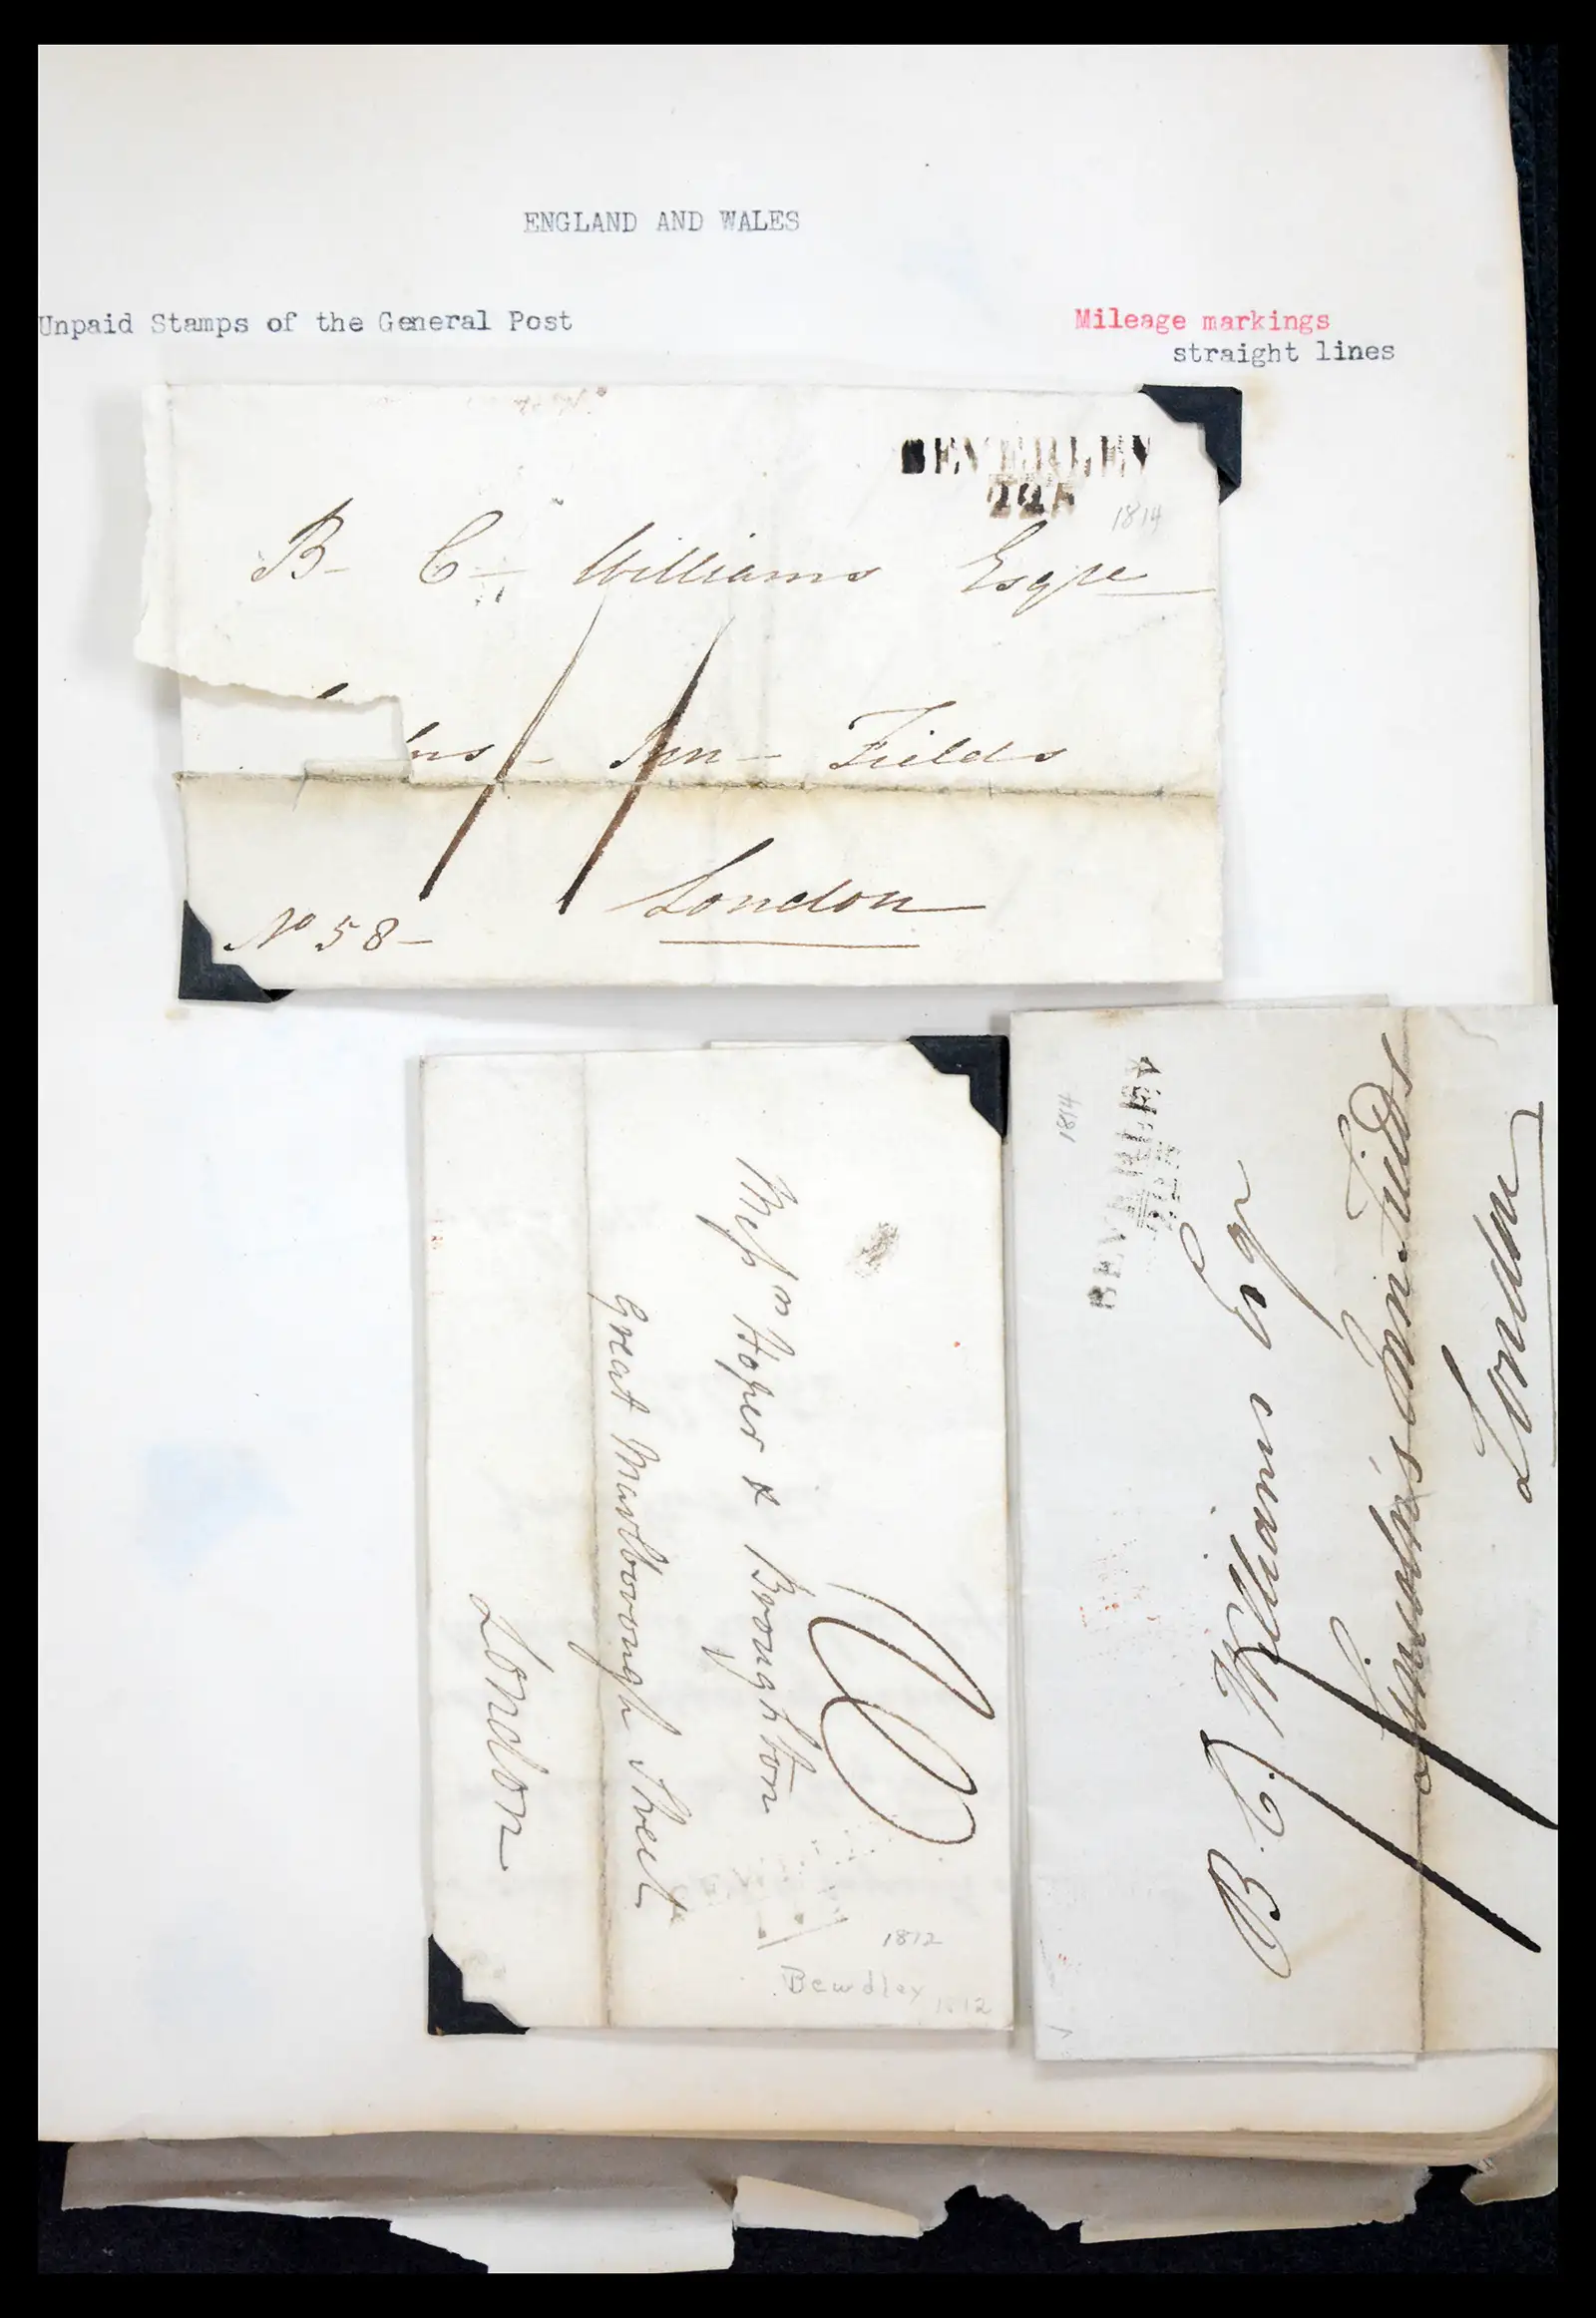 ENGLAND AND WALES
Unpaid Stamps of the General Post
Mileage markings
straight lines
BEVERLEY
1814
B- C- Williams Esqre
ns- Inn- Fields
London
No 58-
1814
BEVERLEY
B. C. Williams Esqr
Lincoln's Inn Fields
London
Messrs Hoper &
Great Marlborough Street
London
1812
Bewdley
1812